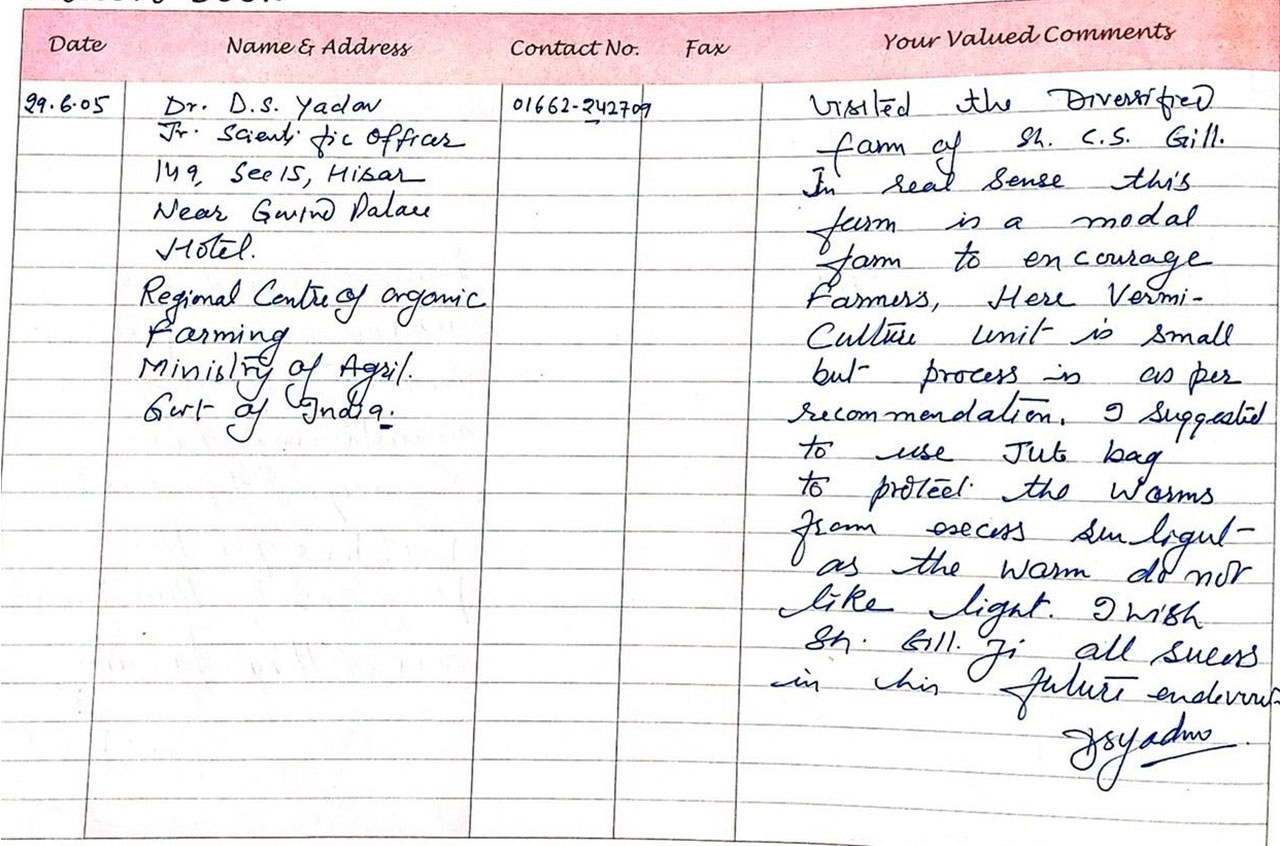 Date Name & Address Contact No. Fax Your Valued Comments
29.6.05
Dr. D.S. Yadav
Jr. Scientific Officer
149, Sec 15, Hisar
Near Govind Palace
Hotel.
Regional Centre of organic
Farming
Ministry of Agril.
Govt of India.
01662-242709
Visited the Diversified
farm of Sh. C.S. Gill.
In real sense this
farm is a modal
farm to encourage
Farmers, Here Vermi-
Culture unit is small
but process is as per
recommendation. I suggested
to use Jute bag
to protect the worms
from excess sun light
as the worm do not
like light. I wish
Sh. Gill. Ji all sucess
in his future
DSYadav